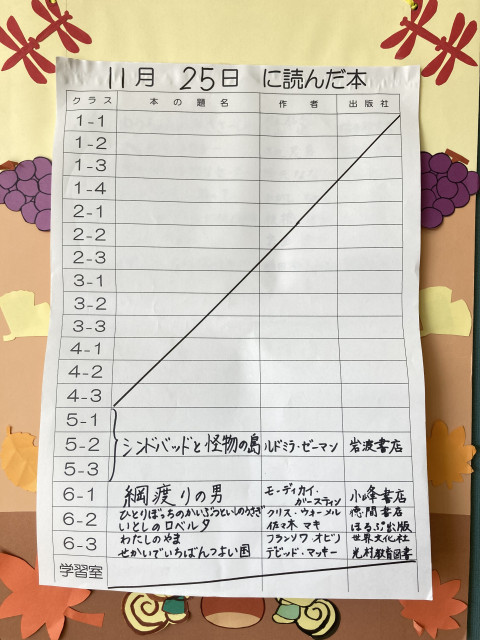 11月 25日 に読んだ本
クラス 本の題名 作者 出版社
1-1
1-2
1-3
1-4
2-1
2-2
2-3
3-1
3-2
3-3
4-1
4-2
4-3
5-1
5-2 シンドバッドと怪物の島 ルドミラ・ゼーマン 岩波書店
5-3
6-1 綱渡りの男 モーディカイ・ガースティン 小峰書店
6-2 ひとりぼっちのかいぶつといしのうさぎ クリス・ウォーメル 徳間書店
いとしのロベルタ 佐々木マキ ほるぷ出版
6-3 わたしのやま フランソワ オビノ 世界文化社
せかいでいちばんつよい国 デビッド・マッキー 光村教育図書
学習室